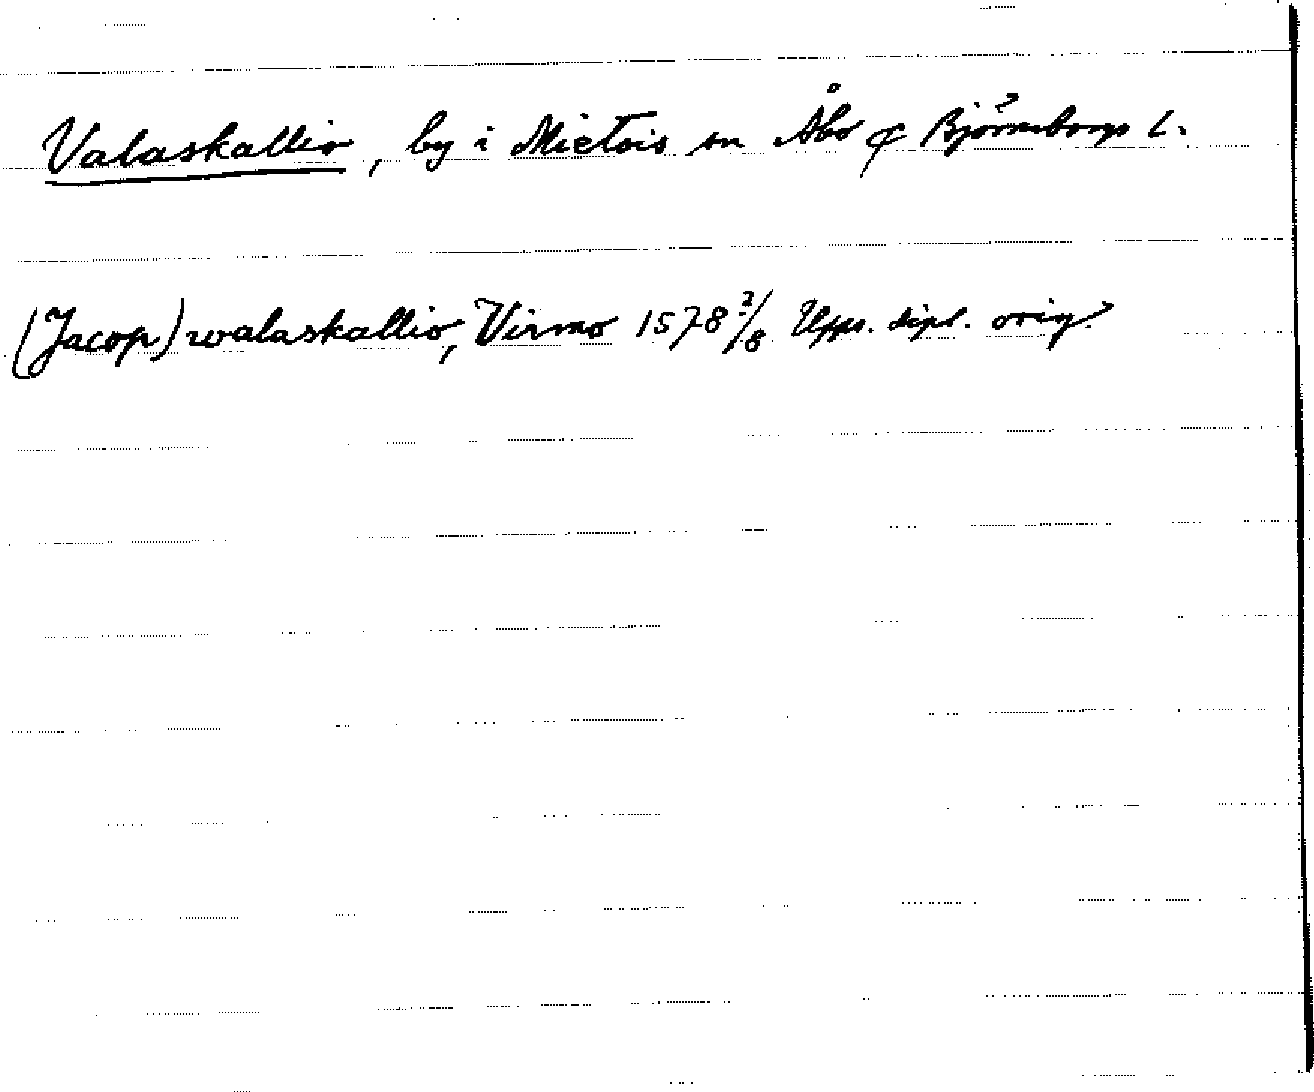 Valaskallio, by i Mietois sn Åbo & Björneborgs l.
(Jacop) walaskallio, Virmo 1578 2/8 Upps. dipl. orig.